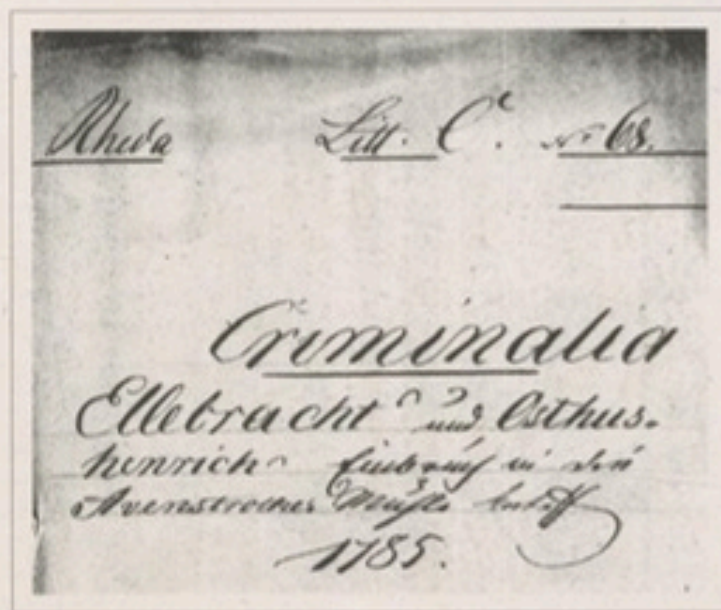 Rheda Litt. C. No 68.
Criminalia
Ellebracht und Osthus-
henrich Einbruch in die
Avenstrother Mühle betreff
1785.